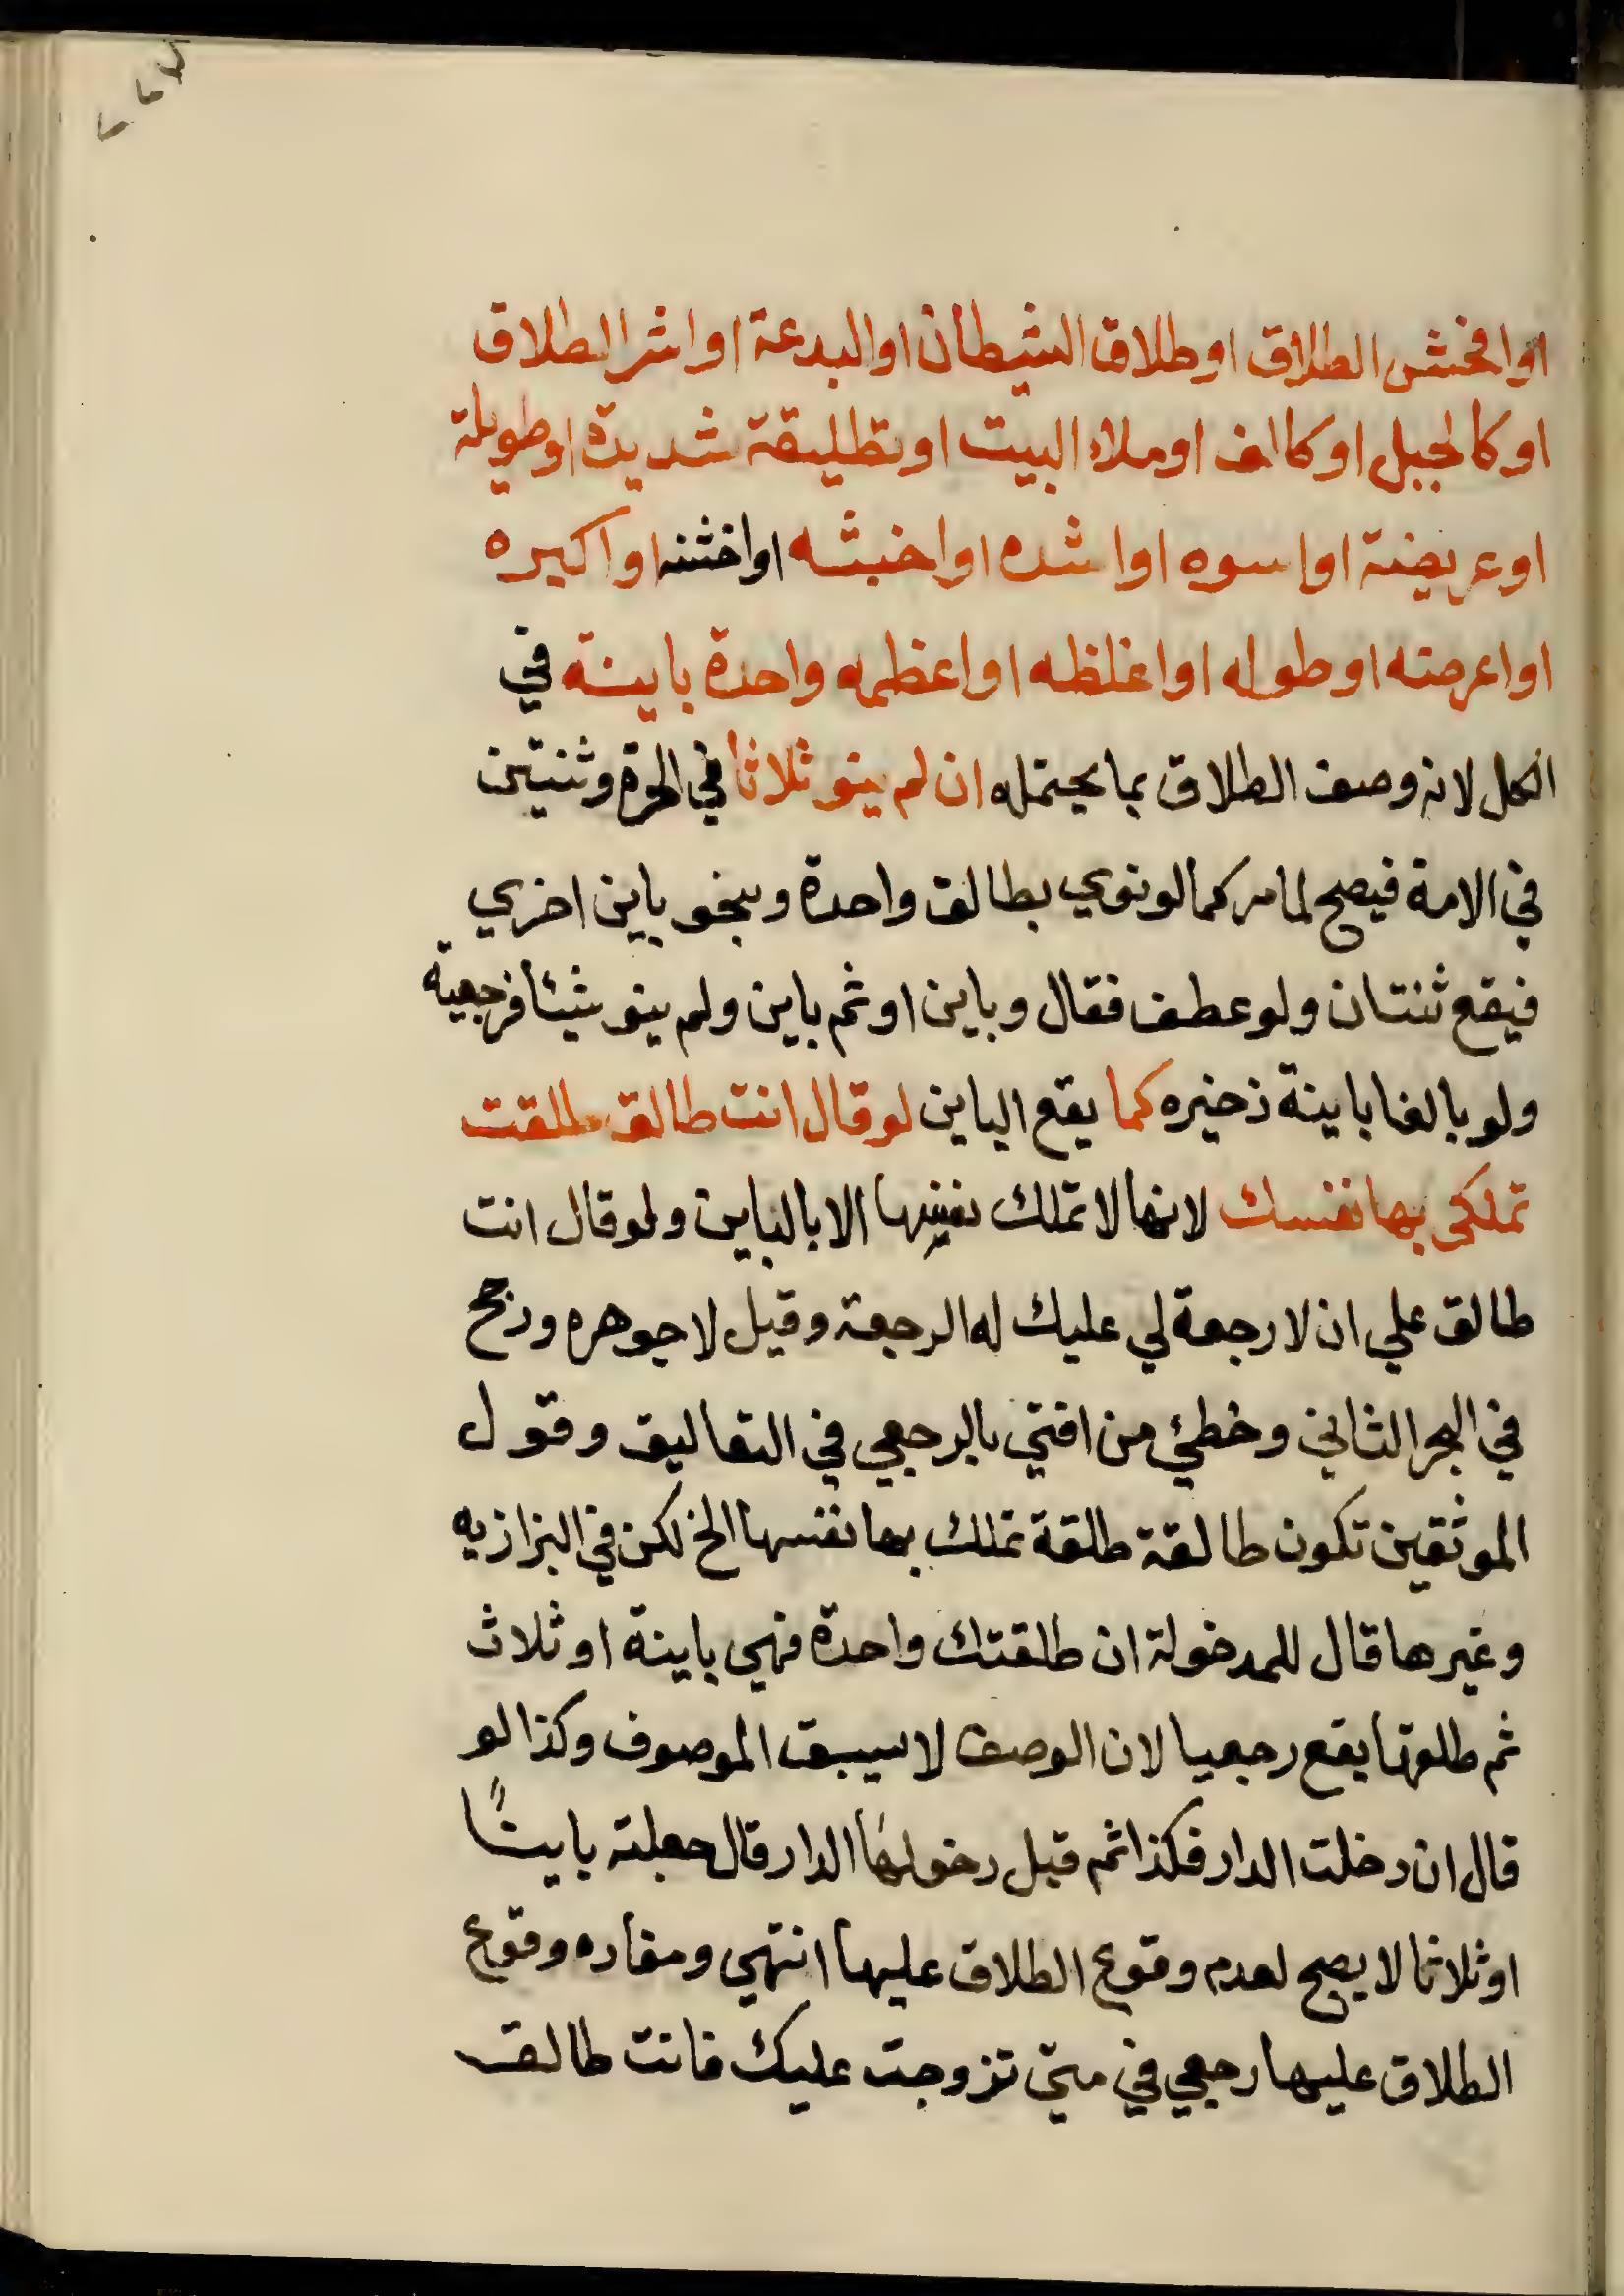 اوافحش الطلاق اوطلاق الشيطان اوالبدعة اواشر الطلاق
اوكالجبل اوكالف اوملاء البيت اوتطليقة شديدة اوطويلة
اوعريضة اواسوه اواشده اواخبثه اواخشنه اواكبره
اواعرضه اوطوله اواغلظه اواعظمه واحدة باينة في
الكل لانه وصف الطلاق بما يحتمله ان لم ينو ثلاثا في الحرة وثنتين
في الامة فيصح لما مر كما لو نوي بطالق واحدة وبنحو باين اخري
فيقع ثنتان ولو عطف فقال وباين او ثم باين ولم ينو شيئا فرجعية
ولو بالفا باينة ذخيره كما يقع الباين لو قال انت طالق طلقت
تملكي بها نفسك لانها لا تملك نفسها الا بالباين ولو قال انت
طالق علي ان لا رجعة لي عليك له الرجعة وقيل لا جوهره ورجح
في البحر الثاني وخطئ من افتي بالرجعي في التعاليق وقول
الموثقين تكون طالقة طلقة تملك بها نفسها الخ لكن في البزازيه
وغيرها قال للمدخولة ان طلقتك واحدة فهي باينة او ثلاث
ثم طلقها يقع رجعيا لان الوصف لا يسبق الموصوف وكذا لو
قال ان دخلت الدار فكذا ثم قبل دخولها الدار قال جعلته باينًا
او ثلاثا لا يصح لعدم وقوع الطلاق عليها انتهي ومفاده وقوع
الطلاق عليها رجعي في متي تزوجت عليك فانت طالق